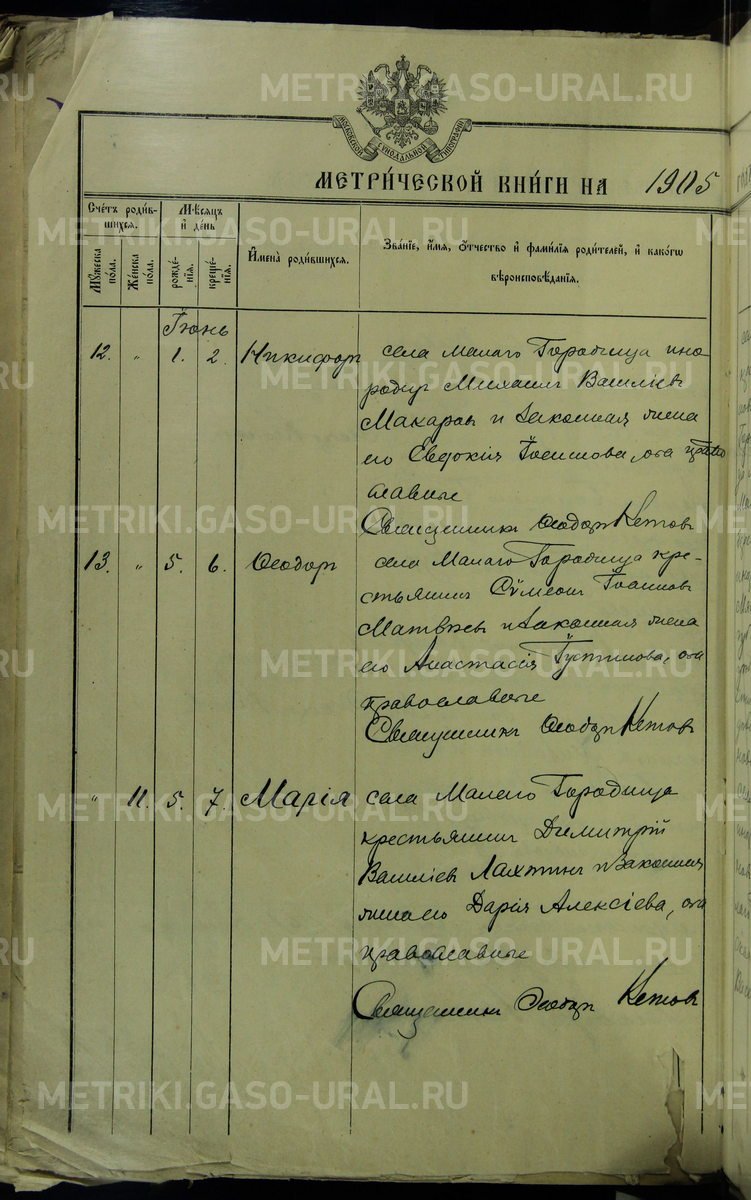 METRIKI.GASO-URAL.RU
МОСКОВСКОЙ СУНОДАЛЬНОЙ ТИПОГРАФІИ
МЕТРИ́ЧЕСКОЙ КНИ́ГИ НА 1905
Сче́тъ роди́в-
шихся.
Мѣ́сяцъ
и҆ де́нь
И҆мена̀ роди́вшихся.
Зва́нїе, и҆́мя, ѻ҆́тчество и҆ фами́лїя роди́телей, и҆ како́гѡ
вѣроисповѣ́данїя.
Мꙋ́жеска
по́ла.
Же́нска
по́ла.
рожде́-
нїя.
креще́-
нїя.
Іюнь
12. " 1. 2. Никифоръ села Малаго Городища ино-
родецъ Михаилъ Василіевъ
Макаровъ и законная жена
его Евдокія Іосифова, оба право
славные
Священникъ Ѳеодоръ Кетовъ
13. " 5. 6. Ѳеодоръ села Малаго Городища кре-
стьянинъ Сѵмеонъ Іоанновъ
Матвѣевъ и законная жена
его Анастасія Іустинова, оба
православные
Священникъ Ѳеодоръ Кетовъ
" 11. 5. 7. Марія села Малаго Городища
крестьянинъ Димитрій
Василіевъ Лахтинъ и законная
жена его Дарія Алексіева, оба
православные
Священникъ Ѳеодоръ Кетовъ